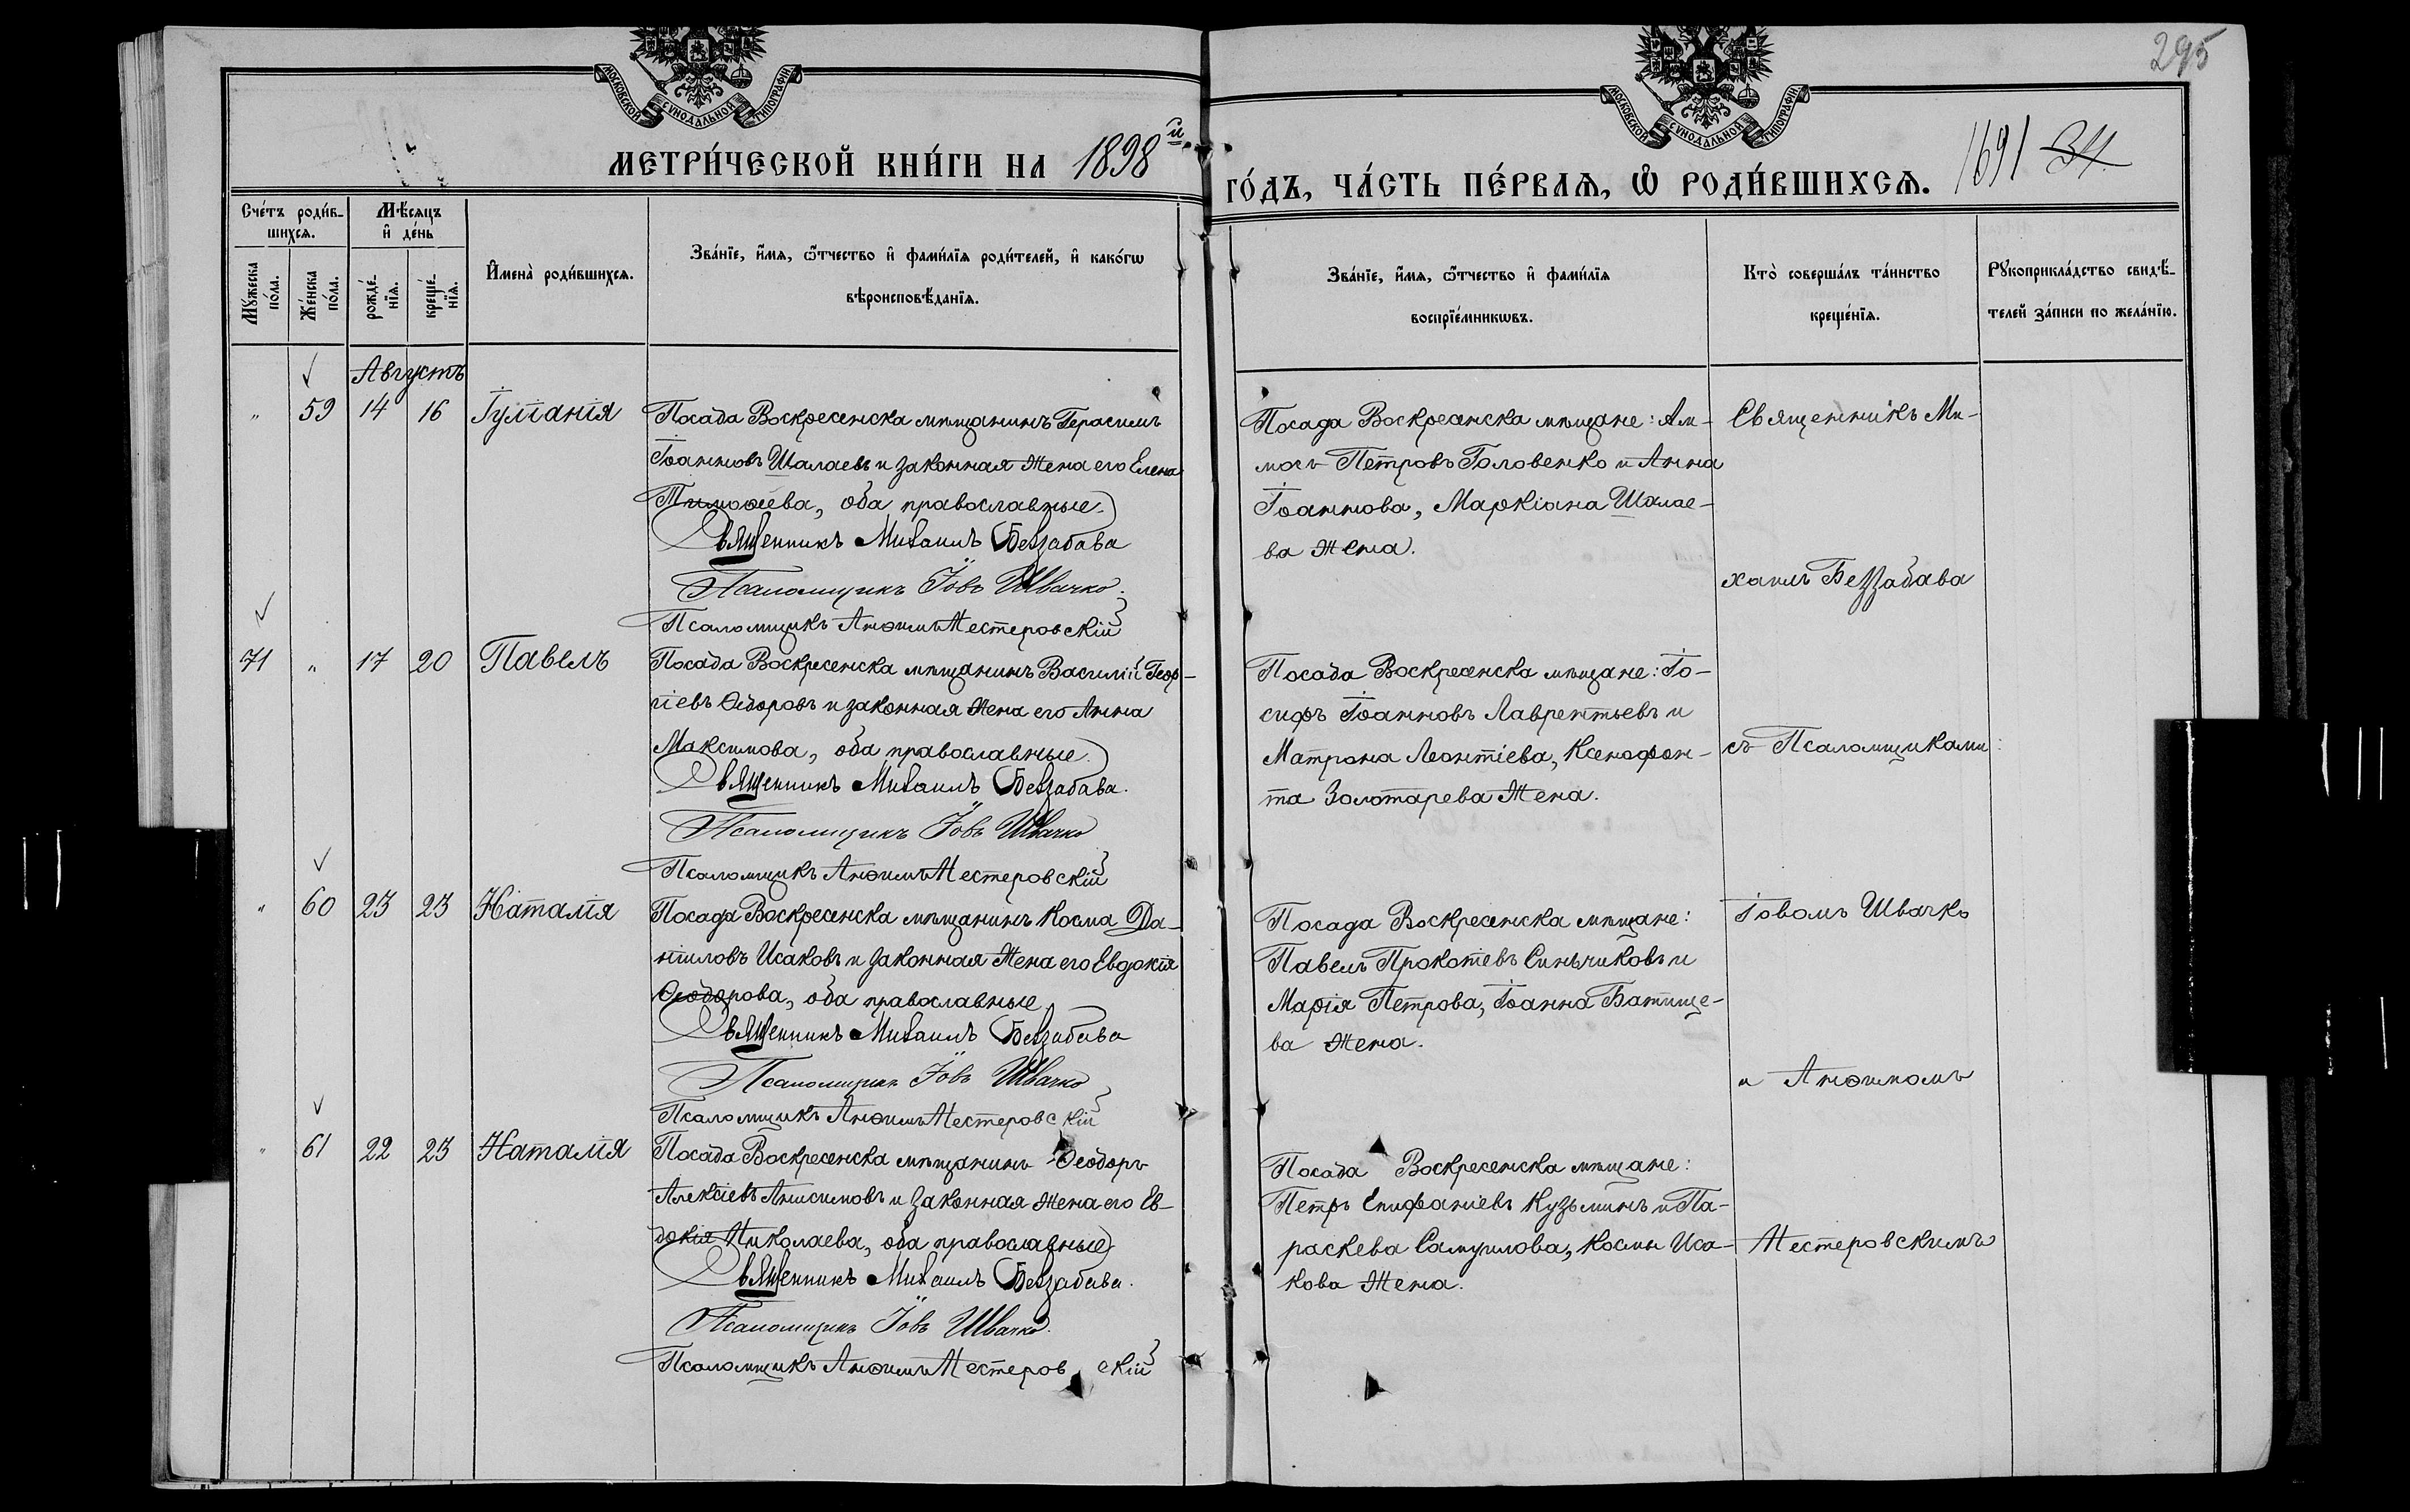 295
МОСКОВСКОЙ СУНОДАЛЬНОЙ ТИПОГРАФІИ
МОСКОВСКОЙ СУНОДАЛЬНОЙ ТИПОГРАФІИ
МЕТРИ́ЧЕСКОЙ КНИ́ГИ НА 1898й
ГО́ДЪ, ЧА́СТЬ ПЕ́РВАЯ, Ѡ҆ РОДИ́ВШИХСЯ. 1691 34
Сче́тъ роди́в-
шихся.
Мѣ́сяцъ
и҆ де́нь
Му́жеска
по́ла.
Же́нска
по́ла.
рожде́-
нїя.
креще́-
нїя.
И҆мена̀ роди́вшихся.
Зва́нїе, и҆́мя, ѻ҆́тчество и҆ фами́лїя роди́телей, и҆ како́гѡ
вѣроисповѣ́данїя.
Зва́нїе, и҆́мя, ѻ҆́тчество и҆ фами́лїя
воспрїе́мникѡвъ.
Кто̀ соверша́лъ та́инство
креще́нїя.
Рꙋкоприкла́дство свидѣ́-
телей за́писи по жела́нїю.
Августъ
" 59 14 16 Іуліанія
Посада Воскресенска мѣщанинъ Герасимъ
Іоанновъ Шалаевъ и законная жена его Елена
Тимоѳеева, оба православные.
Священникъ Михаилъ Беззабава
Псаломщикъ Іовъ Швачко.
Псаломщикъ Анѳимъ Нестеровскій
Посада Воскресенска мѣщане: Ам-
мосъ Петровъ Головенко и Анна
Іоаннова, Маркіана Шалае-
ва жена.
Священникъ Ми-
хаилъ Беззабава
71 " 17 20 Павелъ
Посада Воскресенска мѣщанинъ Василій Геор-
гіевъ Ѳедоровъ и законная жена его Анна
Максимова, оба православные.
Священникъ Михаилъ Беззабава.
Псаломщикъ Іовъ Швачко
Псаломщикъ Анѳимъ Нестеровскій
Посада Воскресенска мѣщане: Іо-
сифъ Іоанновъ Лаврентьевъ и
Матрона Леонтіева, Ксенофон-
та Золотарева жена.
съ Псаломщиками:
" 60 23 23 Наталія
Посада Воскресенска мѣщанинъ Косма Да-
ніиловъ Исаковъ и законная жена его Евдокія
Ѳеодорова, оба православные
Священникъ Михаилъ Беззабава
Псаломщикъ Іовъ Швачко
Псаломщикъ Анѳимъ Нестеровскій
Посада Воскресенска мѣщане:
Павелъ Прокопіевъ Синьчиковъ и
Марія Петрова, Іоанна Батище-
ва жена.
Іовомъ Швачко
и Анѳимомъ
" 61 22 23 Наталія
Посада Воскресенска мѣщанинъ Ѳеодоръ
Алексіевъ Анисимовъ и законная жена его Ев-
докія Николаева, оба православные
Священникъ Михаилъ Беззабава.
Псаломщикъ Іовъ Швачко.
Псаломщикъ Анѳимъ Нестеровскій
Посада Воскресенска мѣщане:
Петръ Епифаніевъ Кузьминъ и Па-
раскева Самуилова, Космы Иса-
кова жена.
Нестеровскимъ